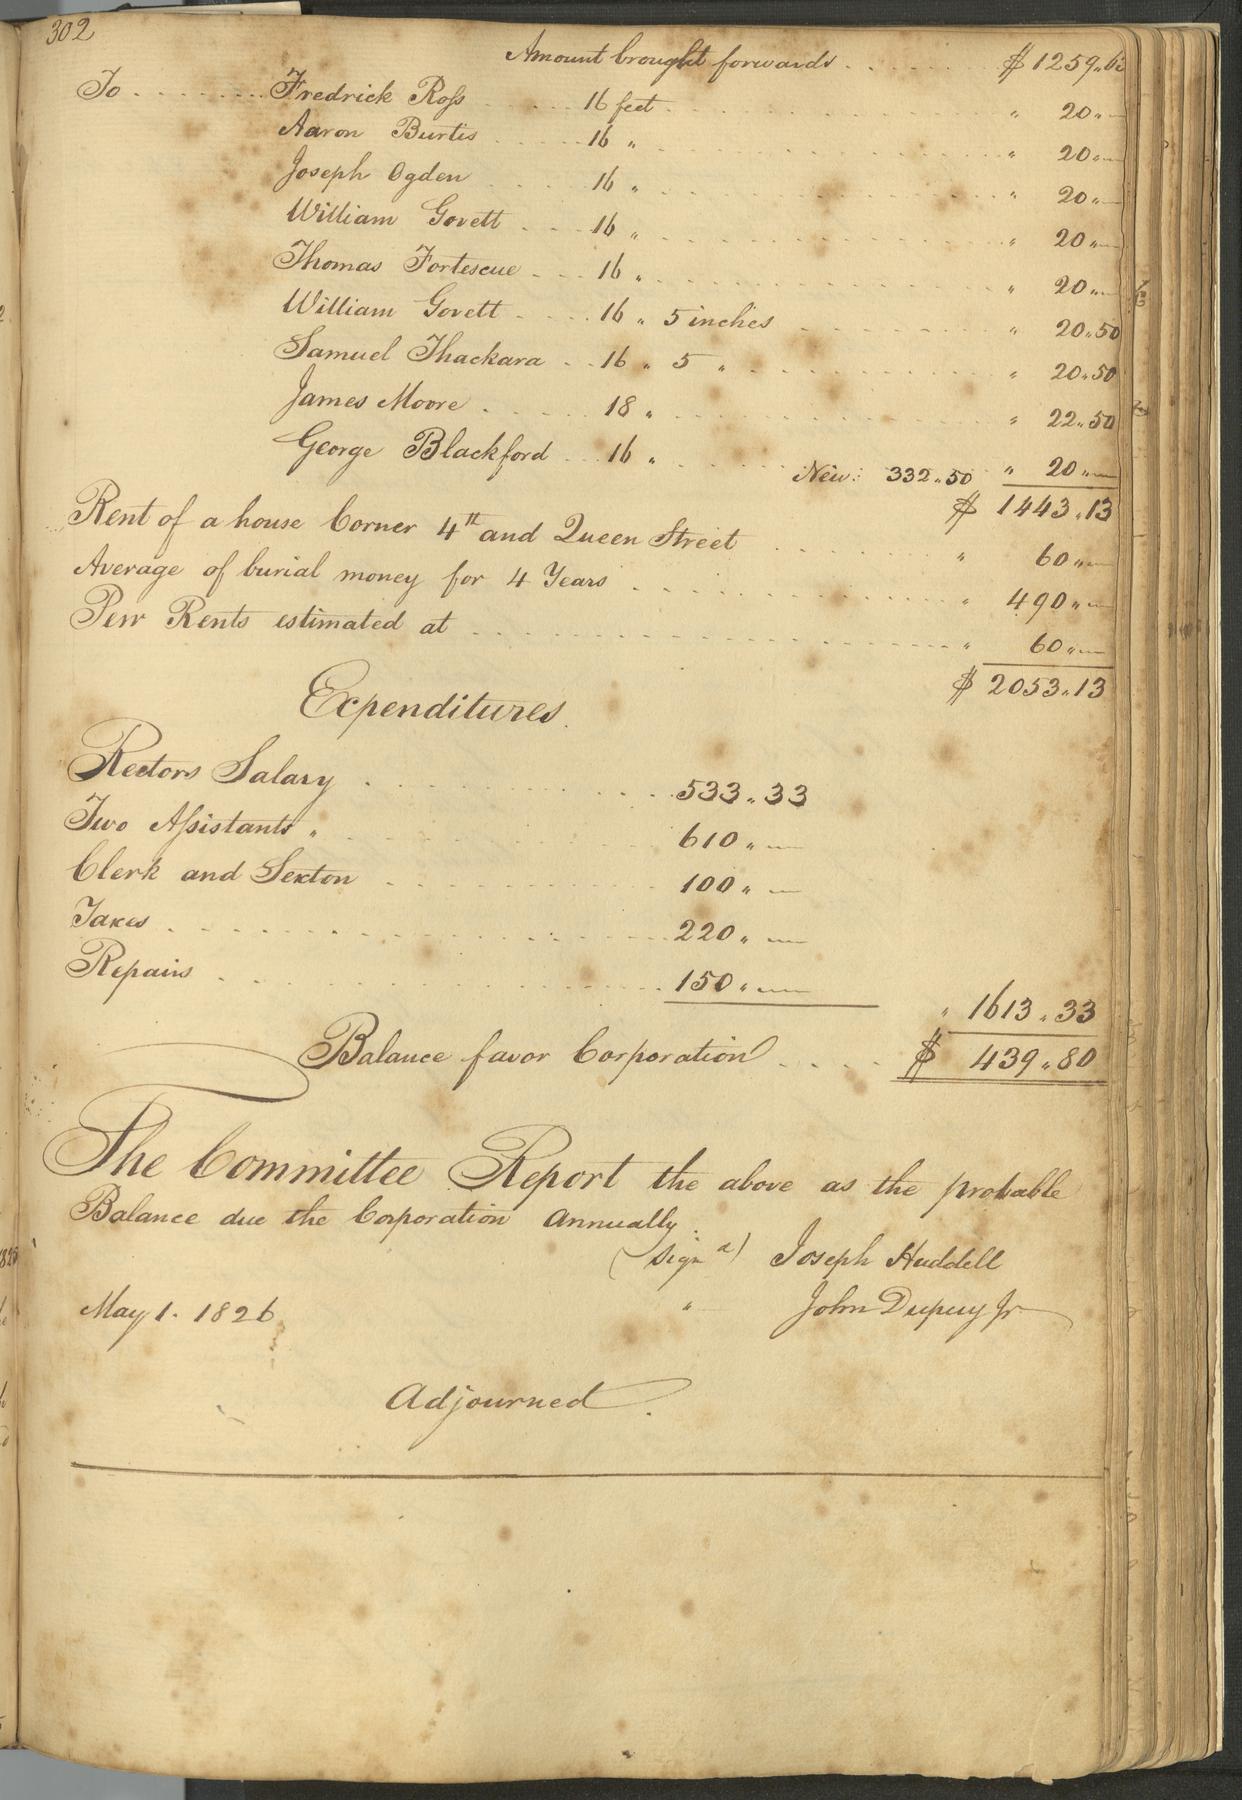 302
Amount brought forwards . . . . . . $ 1259.63
To . . . . . . . . Fredrick Ross . . . . . 16 feet . . . . . . . . . . " 20 "—
Aaron Burtis . . . . . 16 " . . . . . . . . . . " 20 "—
Joseph Ogden . . . . 16 " . . . . . . . . . . " 20 "—
William Govett . . . . 16 " . . . . . . . . . . " 20 "—
Thomas Fortescue . . . 16 " . . . . . . . . . . " 20 "—
William Govett . . . . 16 " 5 inches . . . . . . " 20.50
Samuel Thackara . . . 16 " 5 " . . . . . . . . " 20.50
James Moore . . . . . 18 " . . . . . . . . . . " 22.50
George Blackford . . . 16 " . . . . . New: 332.50 " 20 "—
$ 1443.13
Rent of a house Corner 4th and Queen Street . . . . . . " 60 "—
Average of burial money for 4 Years . . . . . . . . . " 490 "—
Pew Rents estimated at . . . . . . . . . . . . . " 60 "—
$ 2053.13
Expenditures.
Rectors Salary . . . . . . . . 533.33
Two Assistants " . . . . . . . 610 "—
Clerk and Sexton . . . . . . . 100 "—
Taxes . . . . . . . . . . . . 220 "—
Repairs . . . . . . . . . . . 150 "—
" 1613.33
Balance favor Corporation . . . . $ 439.80
The Committee Report the above as the probable
Balance due the Corporation Annually.
(Signd) Joseph Huddell
May 1. 1826 " John Dupuy Jr
Adjourned.